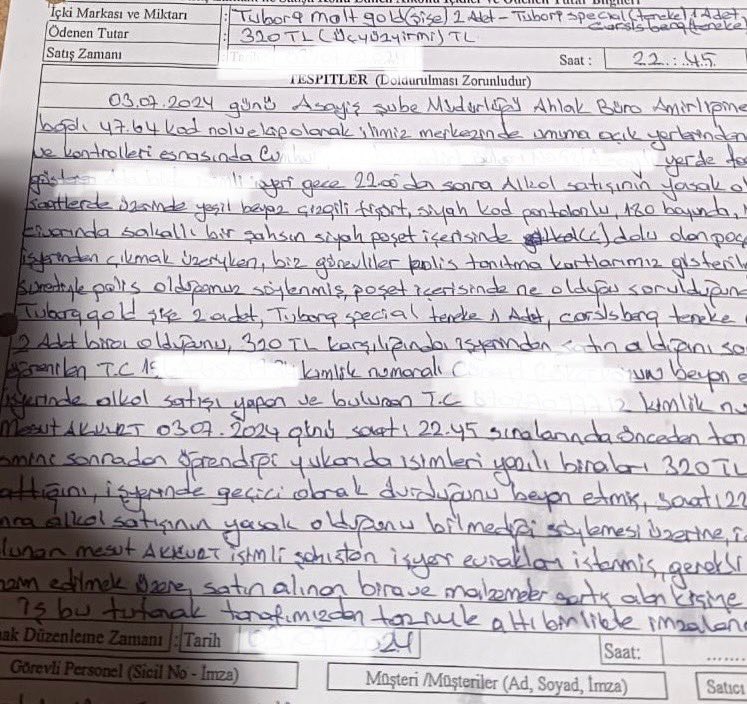 İçki Markası ve Miktarı : Tuborg malt gold(şişe) 2 Adet - Tuborg special(teneke) 1 Adet,
carslsberg(teneke
Ödenen Tutar : 320 TL (üçyüzyirmi) TL.
Satış Zamanı Saat : 22:45
TESPİTLER (Doldurulması Zorunludur)
03.07.2024 günü Asayiş Şube Müdürlüğü Ahlak Büro Amirliğine
bağlı 47.64 kod nolu ekip olarak ilimiz merkezinde umuma açık yerlerinden
ve kontrolleri esnasında yerde
gösteren işyeri gece 22.00'da sonra Alkol satışının yasak
saatlerde üzerinde yeşil beyaz çizgili tişört, siyah kod pantolonlu, 180 boyunda,
civarında sakallı bir şahsın siyah poşet içerisinde dolu olan
işyerinden çıkmak üzereyken, biz görevliler polis tanıtma kartlarımız
suretiyle polis olduğumuz söylenmiş, poşet içerisinde ne olduğu
Tuborg gold şişe 2 adet, Tuborg special teneke 1 Adet, carslsberg teneke
2 Adet birol olduğunu, 320 TL karşılığında işyerinden satın aldığını
öğrenilen T.C 1 kimlik numaralı beyan
işyerinde alkol satışı yapan ve bulunan T.C 2 kimlik
Mesut AKKURT 03.07.2024 günü saat: 22.45 sıralarında önceden
sonradan öğrendiği yukarıda isimleri yazılı biraları 320 TL
işyerinde geçici olarak durduğunu beyan etmiş, saat: 22
alkol satışının yasak olduğunu bilmediği söylemesi üzerine,
mesut AKKURT isimli şahıstan işyeri evrakları istenmiş, gerekli
edilmek üzere, satın alınan bira ve malzemeler satış alan kişiye
iş bu tutanak tarafımızdan tanzimle altı birlikte
Düzenleme Zamanı : Tarih 2024 Saat: ........
Görevli Personel (Sicil No - İmza) Müşteri /Müşteriler (Ad, Soyad, İmza) Satıcı